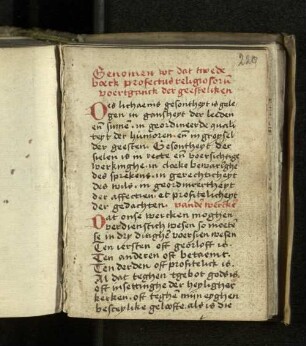 229
Genomen wt dat twede
boeck profectus religiosorū
voertganck der geesteliken
Des lichaems gesontheyt is gele-
gen in gansheyt der leeden
en̄ sinnē. in geordineerde quali
teyt der humoren. en̄ in
der geesten. Gesontheyt der
sielen is in recte en̄ voersichtige
werkinghe. in cloeke bewaringhe
des sprekens. in gerechticheyt
des wils. in geordineertheyt
der affectien. et profitelicheyt
der gedachten. vande wercke
Dat onse wercken moghen
verdienstich wesen so moetē
se in dry dinghē voersien wesen
Ten iersten oft georloft is.
Ten anderen oft betaemt.
Ten derden oft profitelick is.
Al dat teghen tgebot gods is.
oft insettinghe der heyligher
kerken. oft teghē mijn eyghen
gelofte. als is die